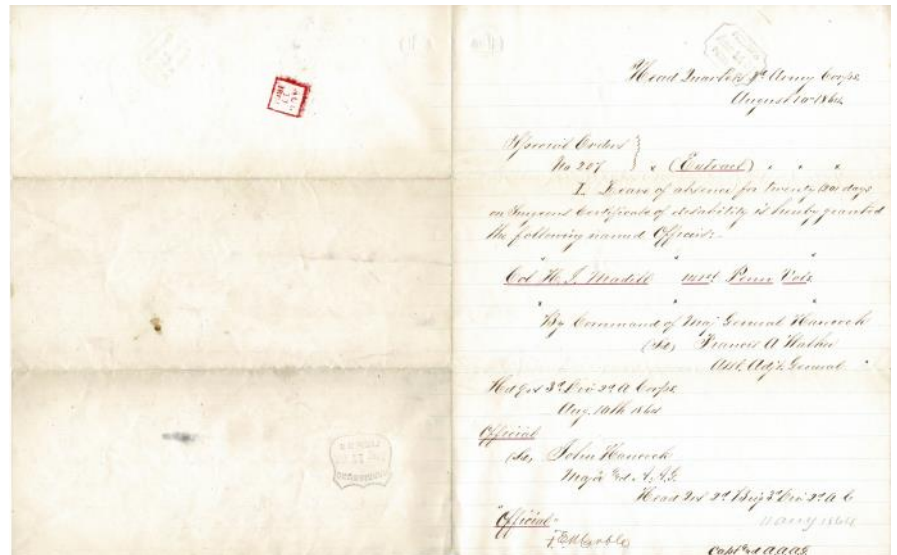 Head Quarters 2d Army Corps
August 10 1864
Special Order
No 207 } " (Extract) " " "
I. Leave of absence for twenty (20) days
on Surgeons Certificate of disability is hereby granted
the following named Officers:-
Col H. J. Madill 141st Penn Vols
By Command of Maj General Hancock
(Sd) Francis A Walker
Asst. Adjt. General
Hd Qrs 3d Div 2d A Corps
Aug. 10th 1864
Official
(Sd) John Hancock
Major and A. A. G.
Head Qrs 2d Brig 3d Div 2d A C
Official- 11 Aug 1864
Capt and A A A G